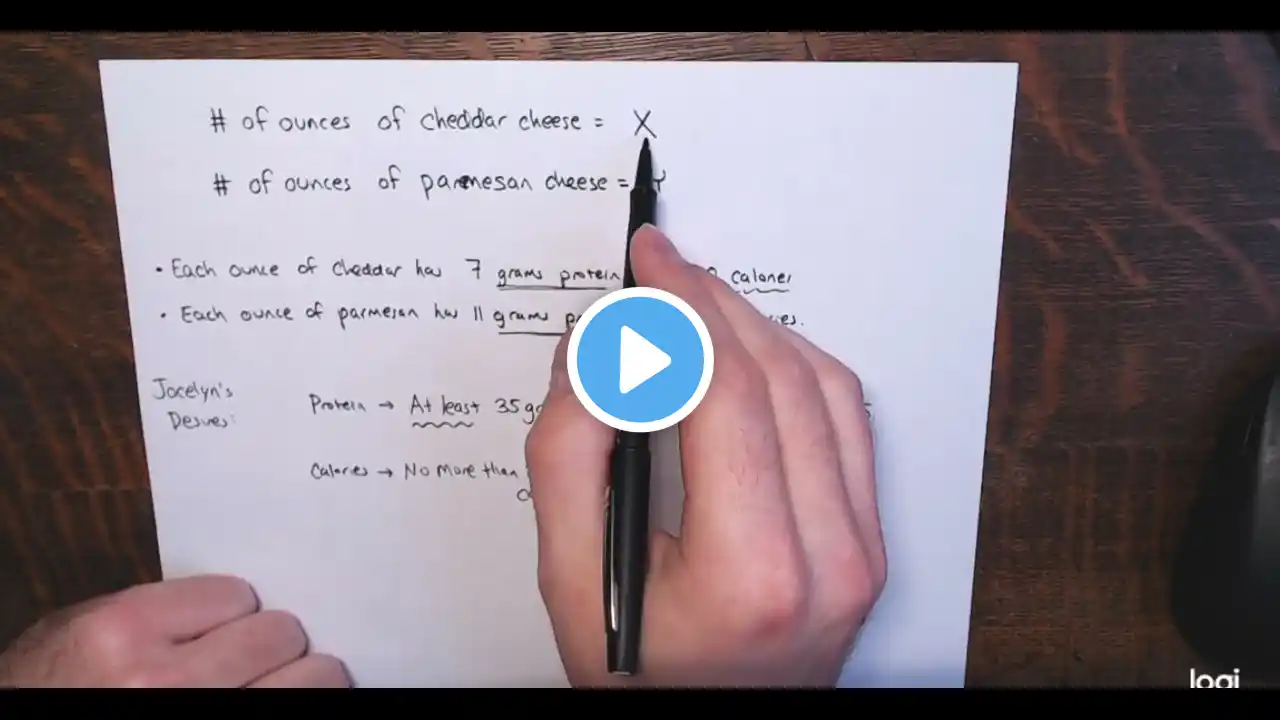 # of ounces of cheddar cheese = X
# of ounces of parmesan cheese = Y
• Each ounce of cheddar has 7 grams protein calories
• Each ounce of parmesan has 11 grams
Jocelyn's
Desires:
Protein → At least 35
Calories → No more than
logi